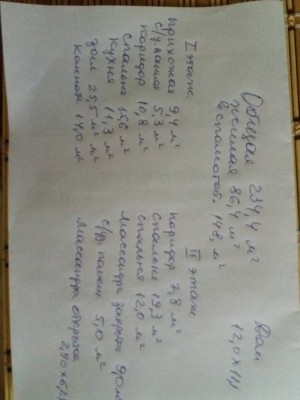 Общая 234,4 м²
жилая 86,4 м²
вспомогат. 148, м²
Вам
12,0 х 11,1
I этаж.
прихожая 9,4 м²
с/у ванна 5,3 м²
коридор 10,8 м²
спальня 15,6 м²
кухня 11,3 м²
зал 25,5 м²
комната 14,0 м²
II этаж
коридор 7,8 м²
спальня 19,3 м²
спальня 12,0 м²
Массандра закрыта
с/у 5,0 м²
Массандра открытая